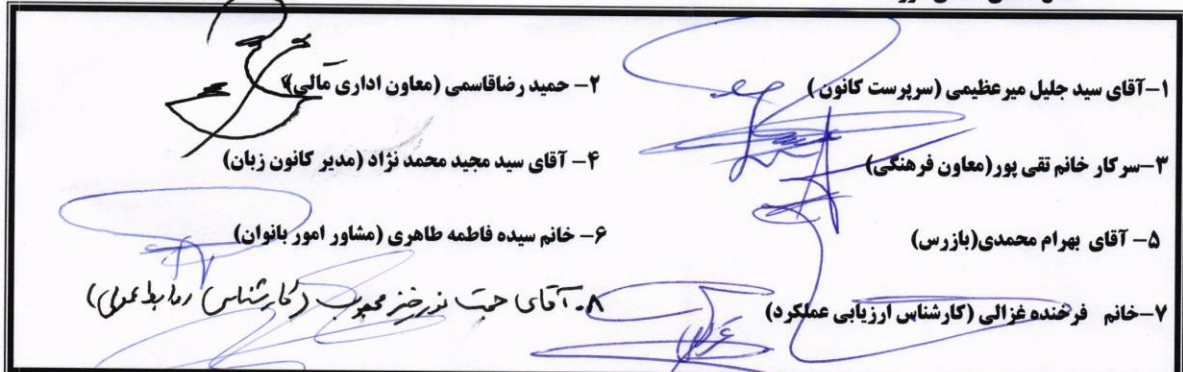 ۱-آقای سید جلیل میرعظیمی (سرپرست کانون)
۲- حمید رضاقاسمی (معاون اداری مالی)
۳-سرکار خانم تقی پور(معاون فرهنگی)
۴- آقای سید مجید محمد نژاد (مدیر کانون زبان)
۵- آقای بهرام محمدی(بازرس)
۶- خانم سیده فاطمه طاهری (مشاور امور بانوان)
۷-خانم فرخنده غزالی (کارشناس ارزیابی عملکرد)
۸- آقای حجت محبوب (کارشناس روابط عمومی)